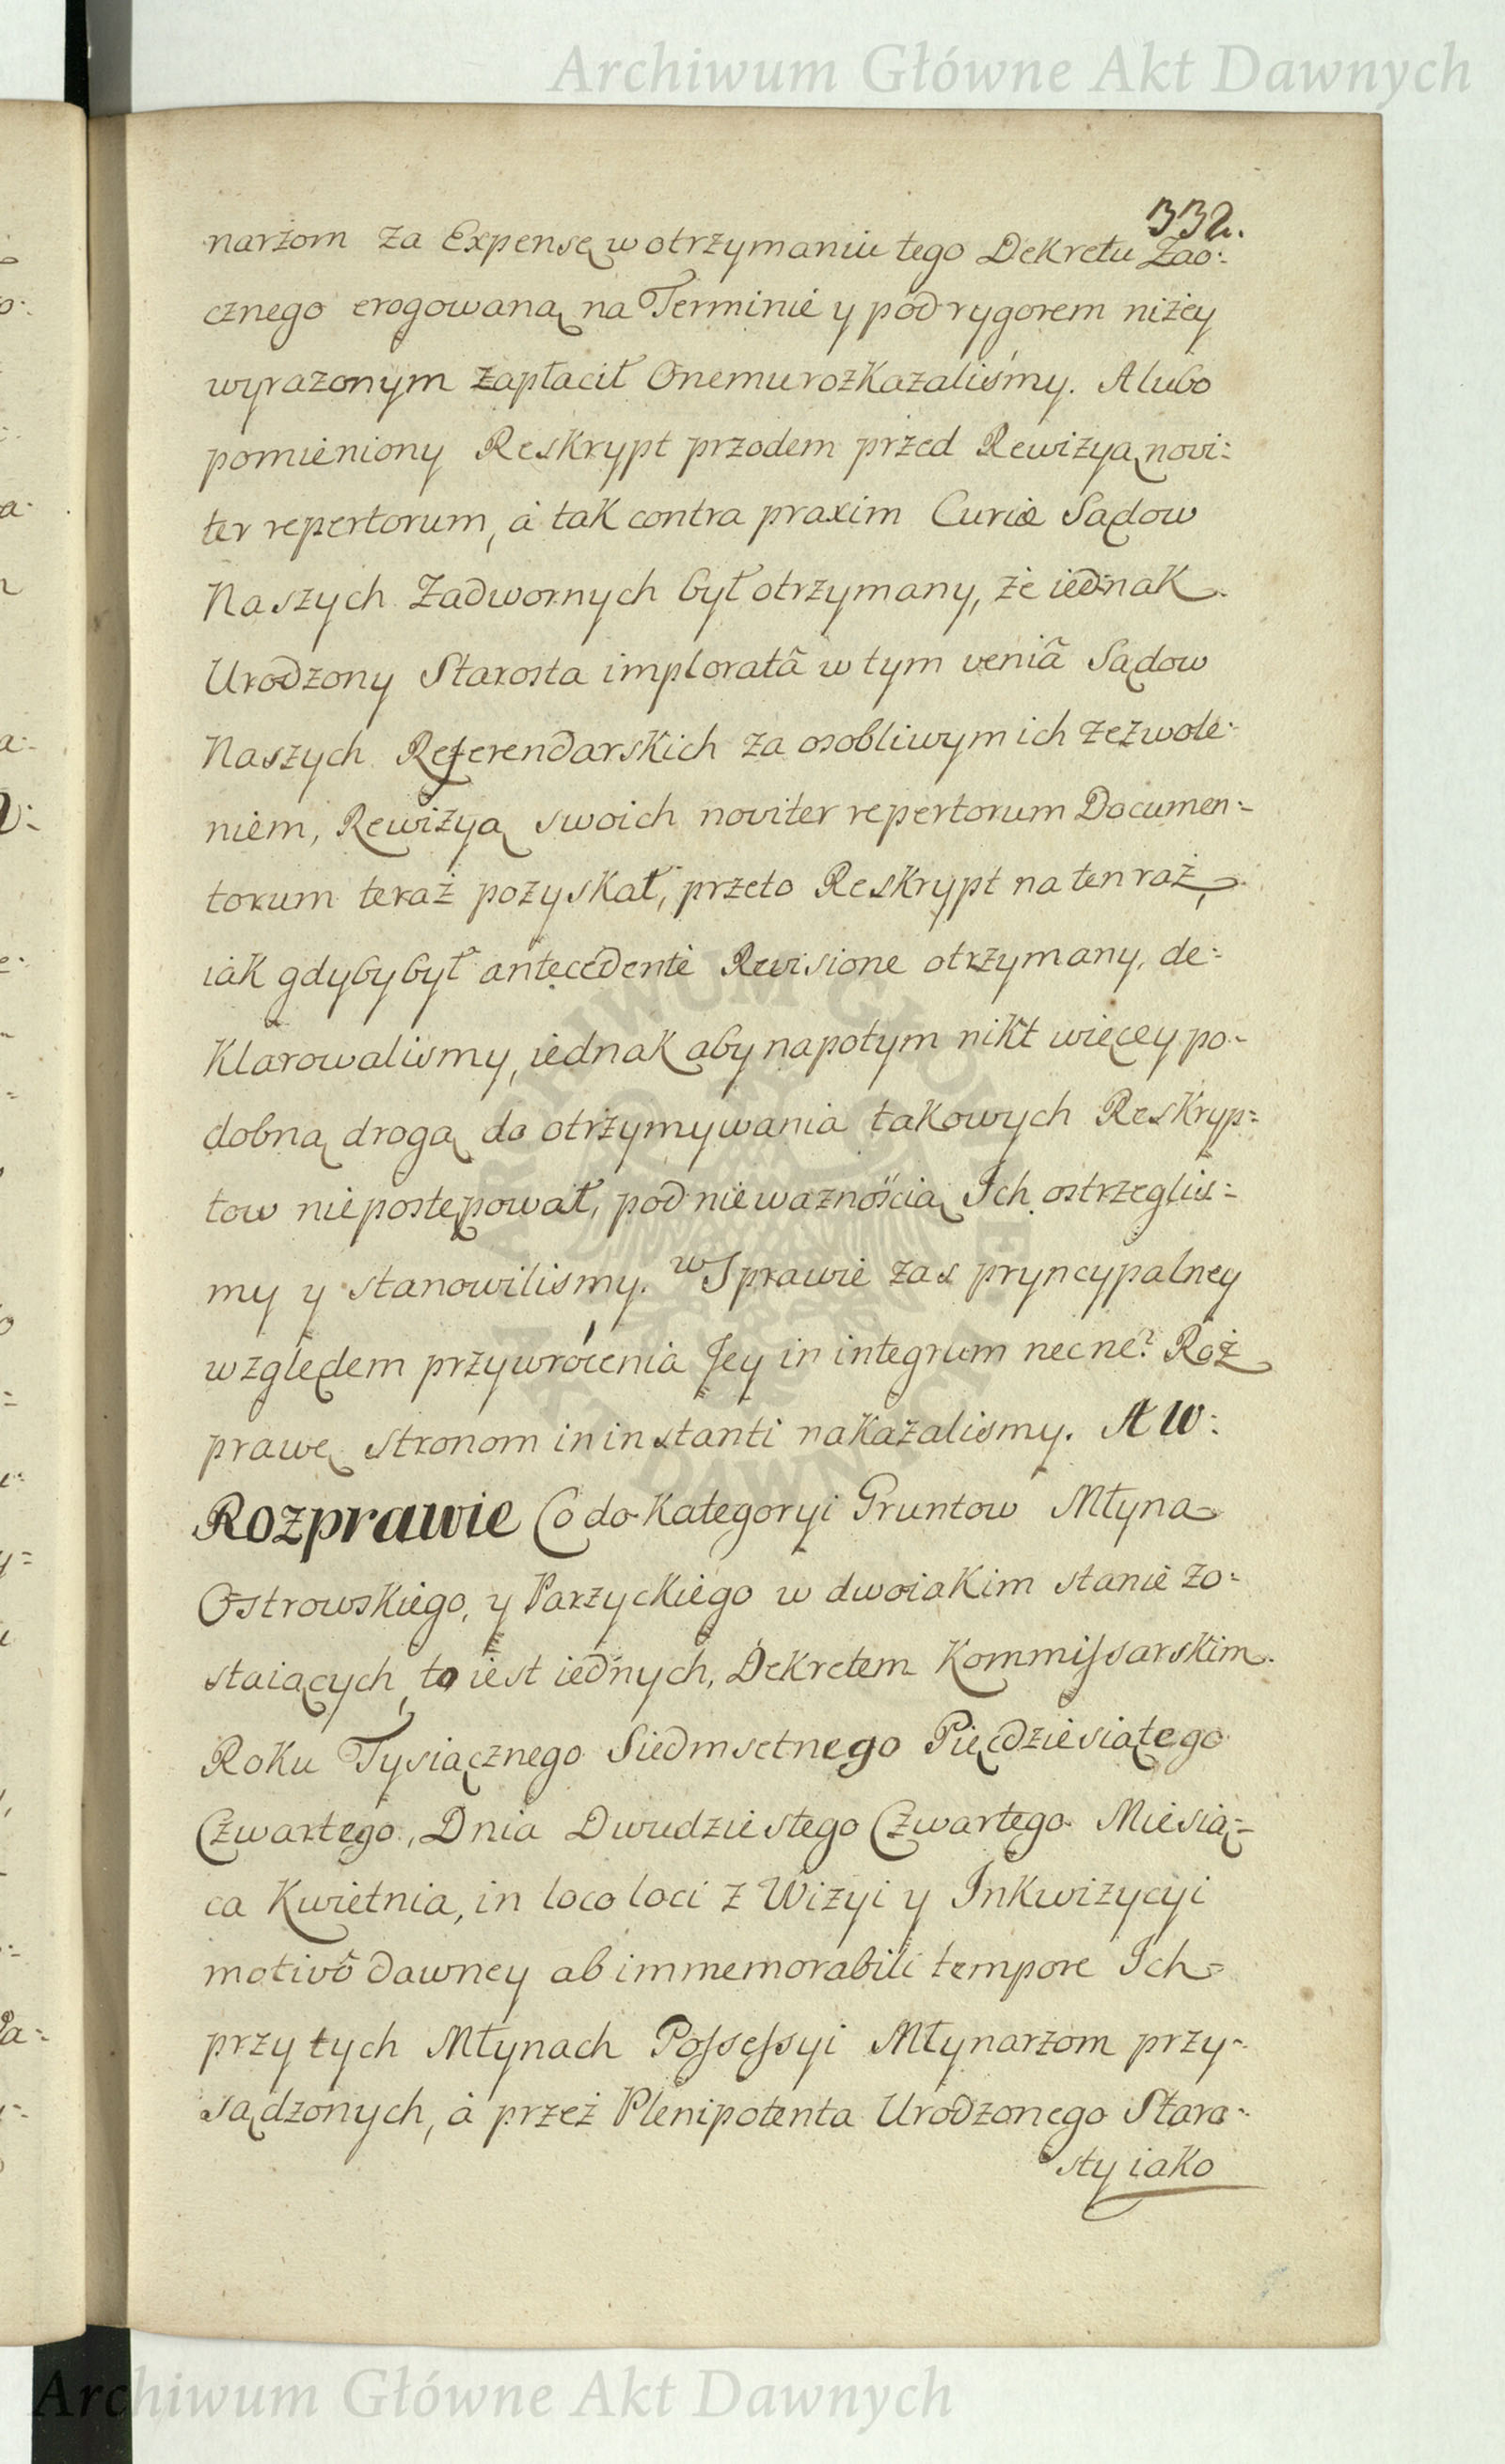 Archiwum Główne Akt Dawnych
332.
narżom za Expensę w otrzymaniu tego Dekretu Zao:
cznego erogowaną na Terminie y pod rygorem niżey
wyrazonym zapłacił Onemu rozkazaliśmy. A lubo
pomieniony Reskrypt przodem przed Rewizyą novi:
ter repertorum, à tak contra praxim Curiæ Sądow
Naszych Zadwornych był otrzymany, że iednak
Urodzony Starosta imploratâ w tym veniâ Sądow
Naszych Referendarskich za osobliwym ich zezwole:
niem, Rewizyą swoich noviter repertorum Documen:
torum teraż pozyskał, przeto Reskrypt na ten raż,
iak gdyby był antecedente Revisione otrzymany, de:
klarowalismy, iednak aby napotym nikt więcey po:
dobną drogą do otrżymywania takowych Reskryp:
tow niepostępował, pod nieważnością Ich ostrzeglis:
my y stanowilismy. w Sprawie zas pryncypalney
względem przywrócenia Jey in integrum nec ne? Roż
prawę stronom in instanti nakazalismy. A w:
Rozprawie Co do Kategoryi Gruntow Młyna
Ostrowskiego, y Parzyckiego w dwoiakim stanie zo:
staiących, to iest iednych, Dekretem Kommissarskim
Roku Tysiącznego Siedmsetnego Pięcdziesiątego
Czwartego, Dnia Dwudziestego Czwartego Miesią:
ca Kwietnia, in loco loci z Wizyi y Inkwizycyi
motivô dawney ab immemorabili tempore Ich
przy tych Młynach Possessyi Młynarzom przy:
sądzonych, à przeż Plenipotenta Urodzonego Staro:
sty iako
Archiwum Główne Akt Dawnych